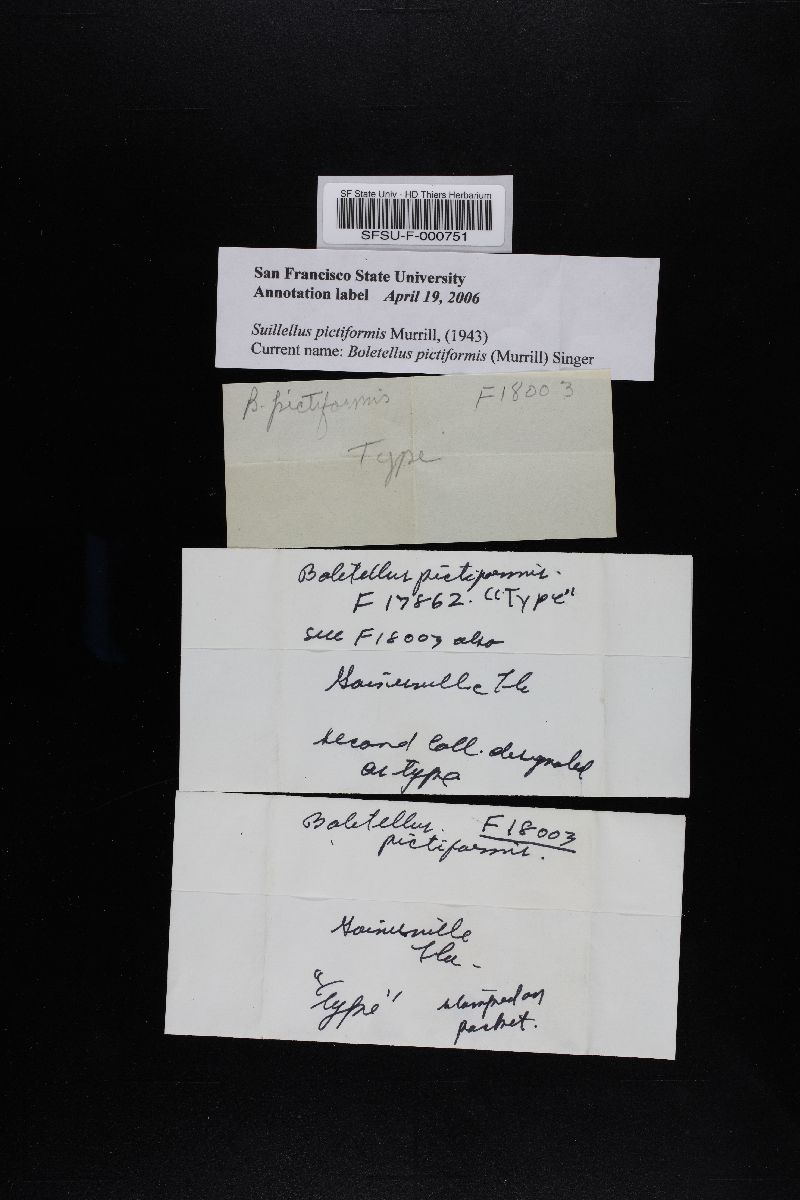 SF State Univ - HD Thiers Herbarium
SFSU-F-000751
San Francisco State University
Annotation label April 19, 2006
Suillellus pictiformis Murrill, (1943)
Current name: Boletellus pictiformis (Murrill) Singer
B. pictiformis F18003
Type
Boletellus pictiformis.
F 17862. "Type"
see F18003 also
Gainesville Fla
second Coll. designated
as type
Boletellus F18003
pictiformis.
Gainesville
Fla.
"Type" stamped on
packet.